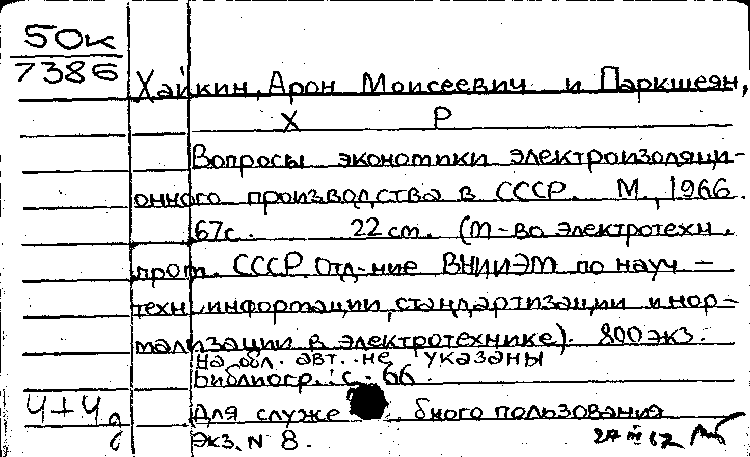 50к
7386
Хайкин, Арон Моисеевич и Паркшеян,
Х Р
Вопросы экономики электроизоляци-
онного производства в СССР. М., 1966.
67с. 22 см. (М-во электротехн.
пром. СССР. Отд-ние ВНИИЭМ по науч-
техн. информации, стандартизации и нор-
мализации в электротехнике). 800 экз.
На обл. авт. не указаны
Библиогр.: с. 66.
Ч+Ч Для служе бного пользования
Экз. N 8.